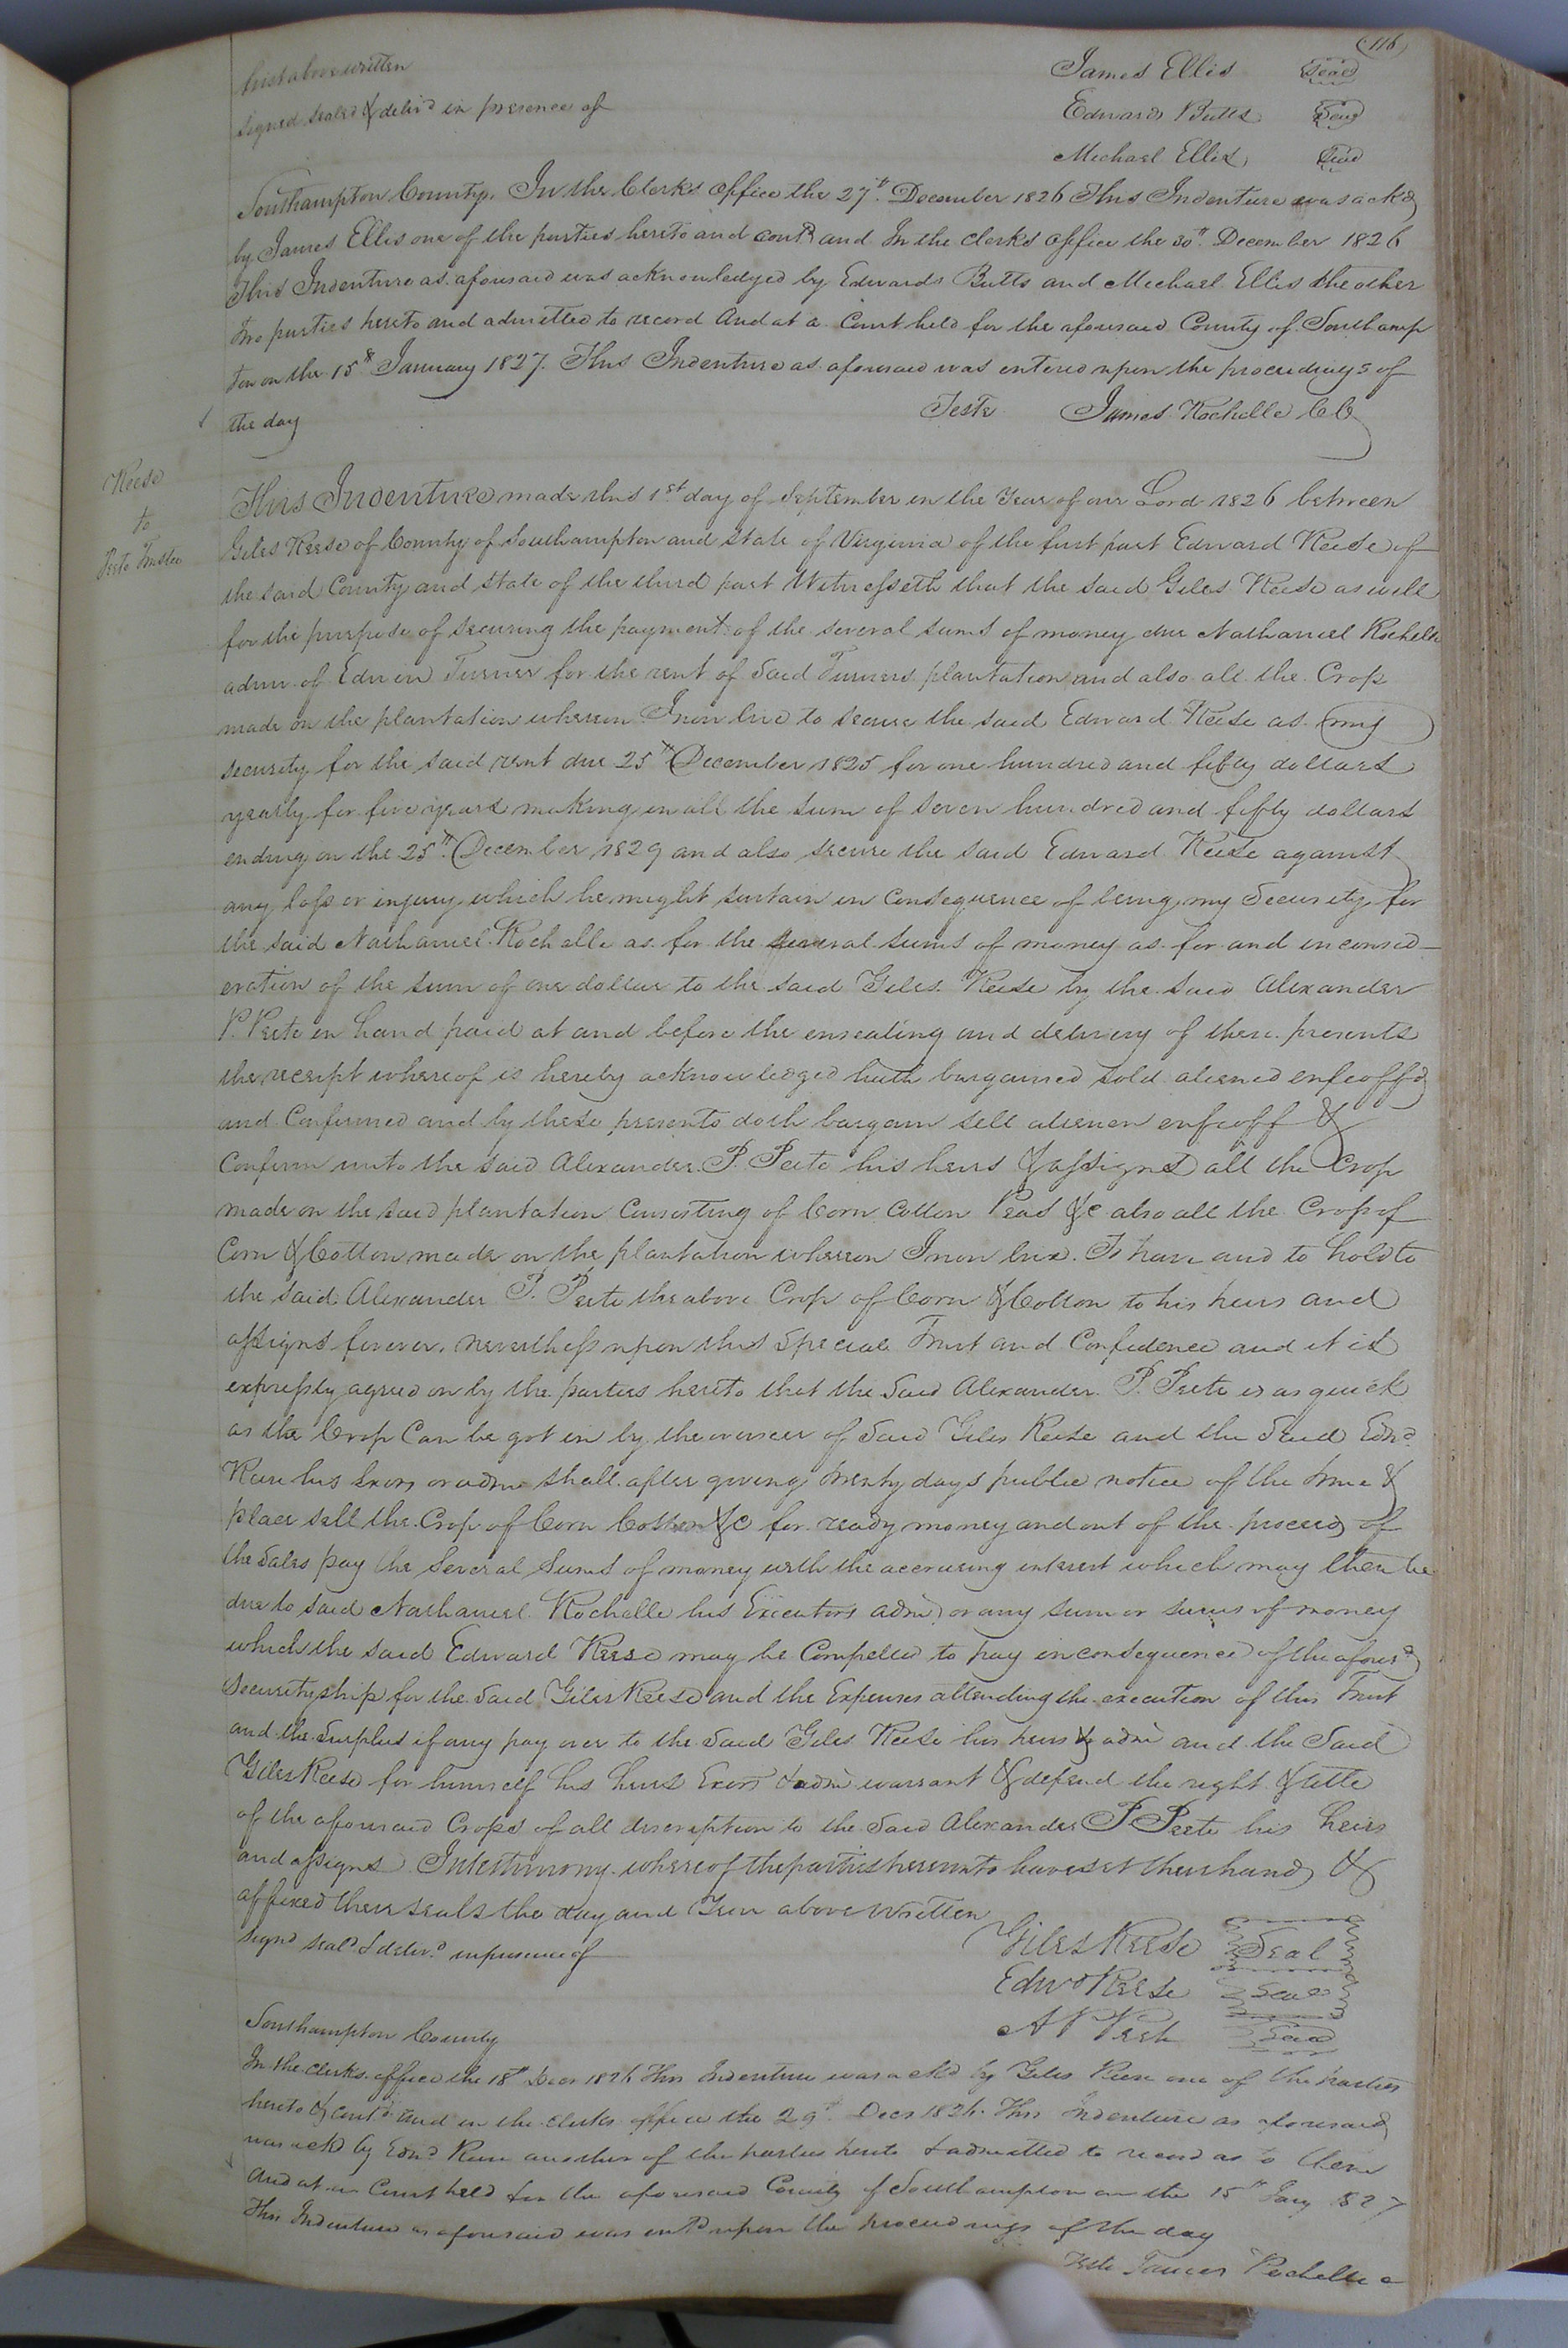 (116)
first above written James Ellis Seal
Signed Sealed & deliv'd in presence of Edwards Butts Seal
Michael Ellis Seal
Southampton County. In the Clerks Office the 27th. December 1826 This Indenture was ackd
by James Ellis one of the parties hereto and contd and In the clerks office the 30th. December 1826
This Indenture as aforesaid was acknowledged by Edwards Butts and Michael Ellis the other
two parties hereto and admitted to record And at a Court held for the aforesaid County of Southamp
ton on the 15th January 1827. This Indenture as aforesaid was entered upon the proceedings of
the day Teste James Rochelle CC
Reese
to
Peete Trustee
This Indenture made this 1st day of September in the Year of our Lord 1826 between
Giles Reese of County of Southampton and State of Virginia of the first part Edward Reese of
the said County and State of the third part Witnesseth that the said Giles Reese as well
for the purpose of securing the payment of the several sums of money due Nathaniel Rochelle
admr of Edwin Turner for the rent of said Turners plantation and also all the Crop
made on the plantation whereon I now live to secure the said Edward Reese as my
security for the said rent due 25th December 1825 for one hundred and fifty dollars
yearly for five years making in all the sum of seven hundred and fifty dollars
ending on the 25th. December 1829 and also secure the said Edward Reese against
any loss or injury which he might sustain in Consequence of being my Security for
the said Nathaniel Rochelle as for the several sums of money as for and in consid-
eration of the sum of one dollar to the said Giles Reese by the said Alexander
P. Peete in hand paid at and before the ensealing and delivery of these presents
the receipt whereof is hereby acknowledged hath bargained sold aliened enfeoffd
and Confirmed and by these presents doth bargain sell alienen enfeoff &
Confirm unto the said Alexander P. Peete his heirs & assigns all the Crop
made on the said plantation Consisting of Corn Cotton Peas &c also all the Crop of
Corn & Cotton made on the plantation whereon I now live. To have and to hold to
the said Alexander P. Peete the above Crop of Corn & Cotton to his heirs and
assigns forever. nevertheless upon this Special Trust and Confidence and it is
expressly agreed on by the parties hereto that the said Alexander P. Peete is as quick
as the Crop Can be got in by the overseer of said Giles Reese and the said Edwd.
Reese his Exors or admr shall after giving twenty days public notice of the time &
place sell the Crop of Corn Cotton &c for ready money and out of the proceeds of
the Sales pay the Several Sums of money with the accruing interest which may then be
due to said Nathaniel Rochelle his Executors admr or any sum or sums of money
which the said Edward Reese may be Compelled to pay in consequence of the aforesd
Securityship for the said Giles Reese and the Expenses attending the execution of this Trust
and the Surplus if any pay over to the said Giles Reese his heirs & admr and the Said
Giles Reese for himself his heirs Exors & admr warrant & defend the right & title
of the aforesaid Crops of all description to the said Alexander P. Peete his heirs
and assigns In testimony whereof the parties hereunto have set their hands &
affixed their seals the day and Year above Written
Signd Seald & delivd in presence of Giles Reese Seal
Edwd Reese Seal
A P Peete Seal
Southampton County
In the clerks office the 18th Decr 1826 This Indenture was ackd by Giles Reese one of the parties
hereto & contd and in the clerks office the 29th. Decr 1826. This Indenture as aforesaid
was ackd by Edwd Reese another of the parties hereto & admitted to record as to them
And at a Court held for the aforesaid County of Southampton on the 15th Jany 1827
This Indenture as aforesaid was entd upon the proceedings of the day
Teste James Rochelle c